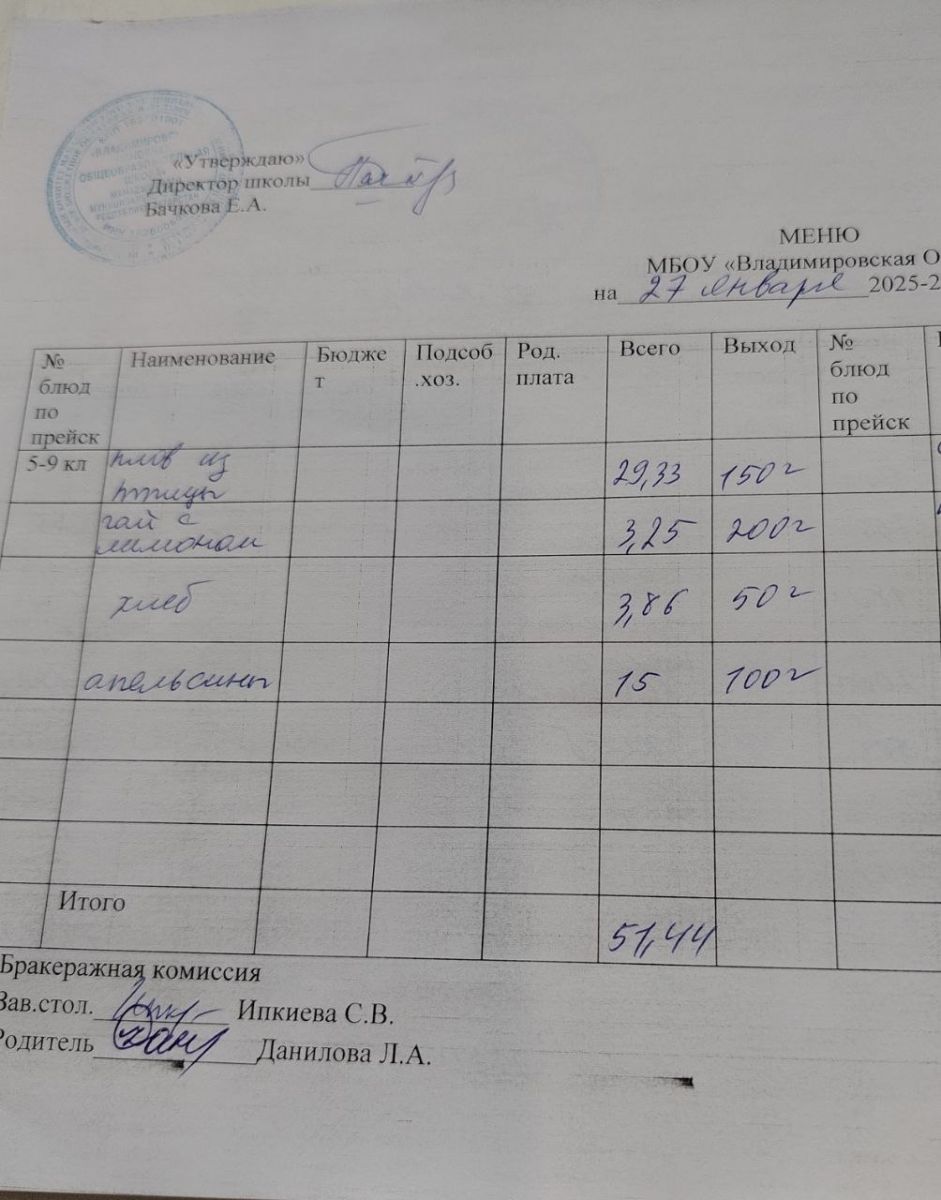 «ВЛАДИМИРОВС
ОБЩЕОБРАЗОВАТЕЛЬНАЯ
ШКОЛА»
«Утверждаю»
Директор школы
Бачкова Е.А.
МЕНЮ
МБОУ «Владимировская О
на 27 января 2025-2
№ блюд по прейск Наименование Бюджет Подсоб.хоз. Род. плата Всего Выход № блюд по прейск
5-9 кл плов из птицы 29,33 150г
чай с лимоном 3,25 200г
хлеб 3,86 50г
апельсины 15 100г
Итого 51,44
Бракеражная комиссия
Зав.стол. Ипкиева С.В.
Родитель Данилова Л.А.